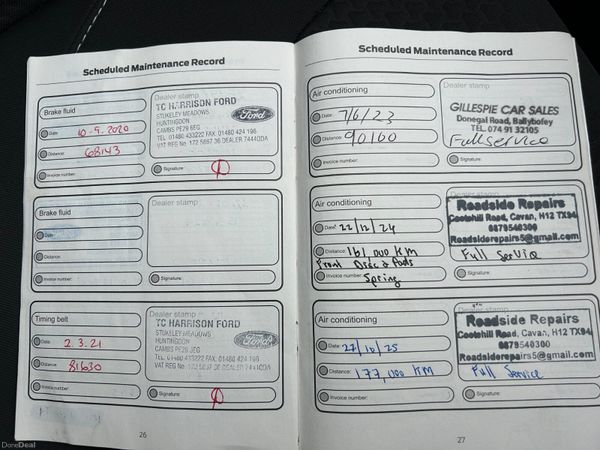 Scheduled Maintenance Record
Brake fluid
Date: 10.9.2020
Distance: 68143
Invoice number:
Dealer stamp
TC HARRISON FORD
STUKELEY MEADOWS
HUNTINGDON
CAMBS PE29 6EG
TEL 01480 433222 FAX: 01480 424 196
VAT REG No
Ford
Signature:
Brake fluid
Date:
Distance:
Invoice number:
Dealer stamp
Signature:
Timing belt
Date: 2.3.21
Distance: 81630
Invoice number:
Dealer stamp
TC HARRISON FORD
STUKELEY MEADOWS
HUNTINGDON
CAMBS PE29 6EG
TEL 01480 433222 FAX: 01480 424 196
VAT REG No
Ford
Signature:
26
Scheduled Maintenance Record
Air conditioning
Date: 7/6/23
Distance: 90160
Invoice number:
Dealer stamp
GILLESPIE CAR SALES
Donegal Road, Ballybofey
TEL. 074 91 32105
Full service
Signature:
Air conditioning
Date: 22/12/24
Distance: 161,000 KM
Front Disc & Pads
Invoice number: Spring
Dealer stamp
Roadside Repairs
Cootehill Road, Cavan, H12 TX94
0879540300
Roadsiderepairs5@gmail.com
Full Service
Signature:
Air conditioning
Date: 27/10/25
Distance: 177,000 KM
Invoice number:
Dealer stamp
Roadside Repairs
Cootehill Road, Cavan, H12 TX94
0879540300
Roadsiderepairs5@gmail.com
Full Service
Signature:
27
DoneDeal